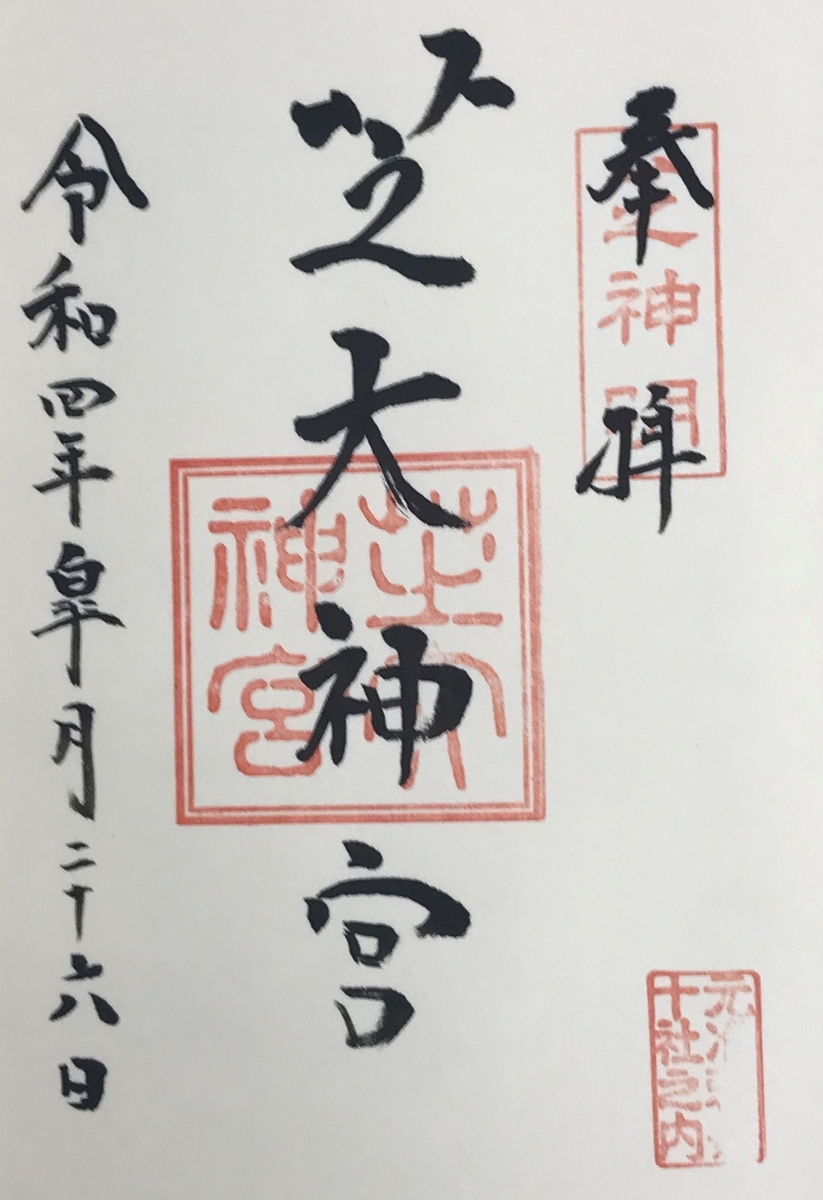 奉拝
神明
芝大神宮
芝大神宮
令和四年皐月二十六日
元
十社之内